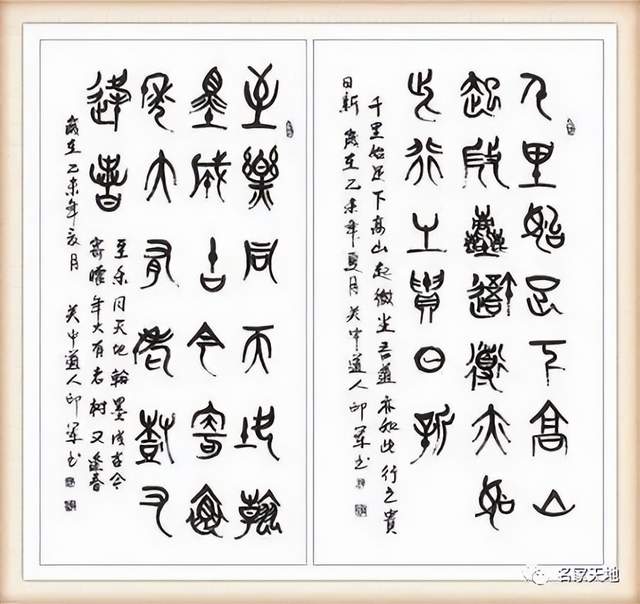 千里始足下高山
起微塵吾道亦如
此行之貴日新
千里始足下高山起微尘吾道亦如此行之貴
日新 歲在乙未年夏月 吴中道人印軍书
至樂同天地翰
墨成古今寄
年大有老樹又
逢春
至乐同天地翰墨成古今
寄曜年大有老树又逢春
歲在乙未年亥月 吴中道人印軍书
名家天地